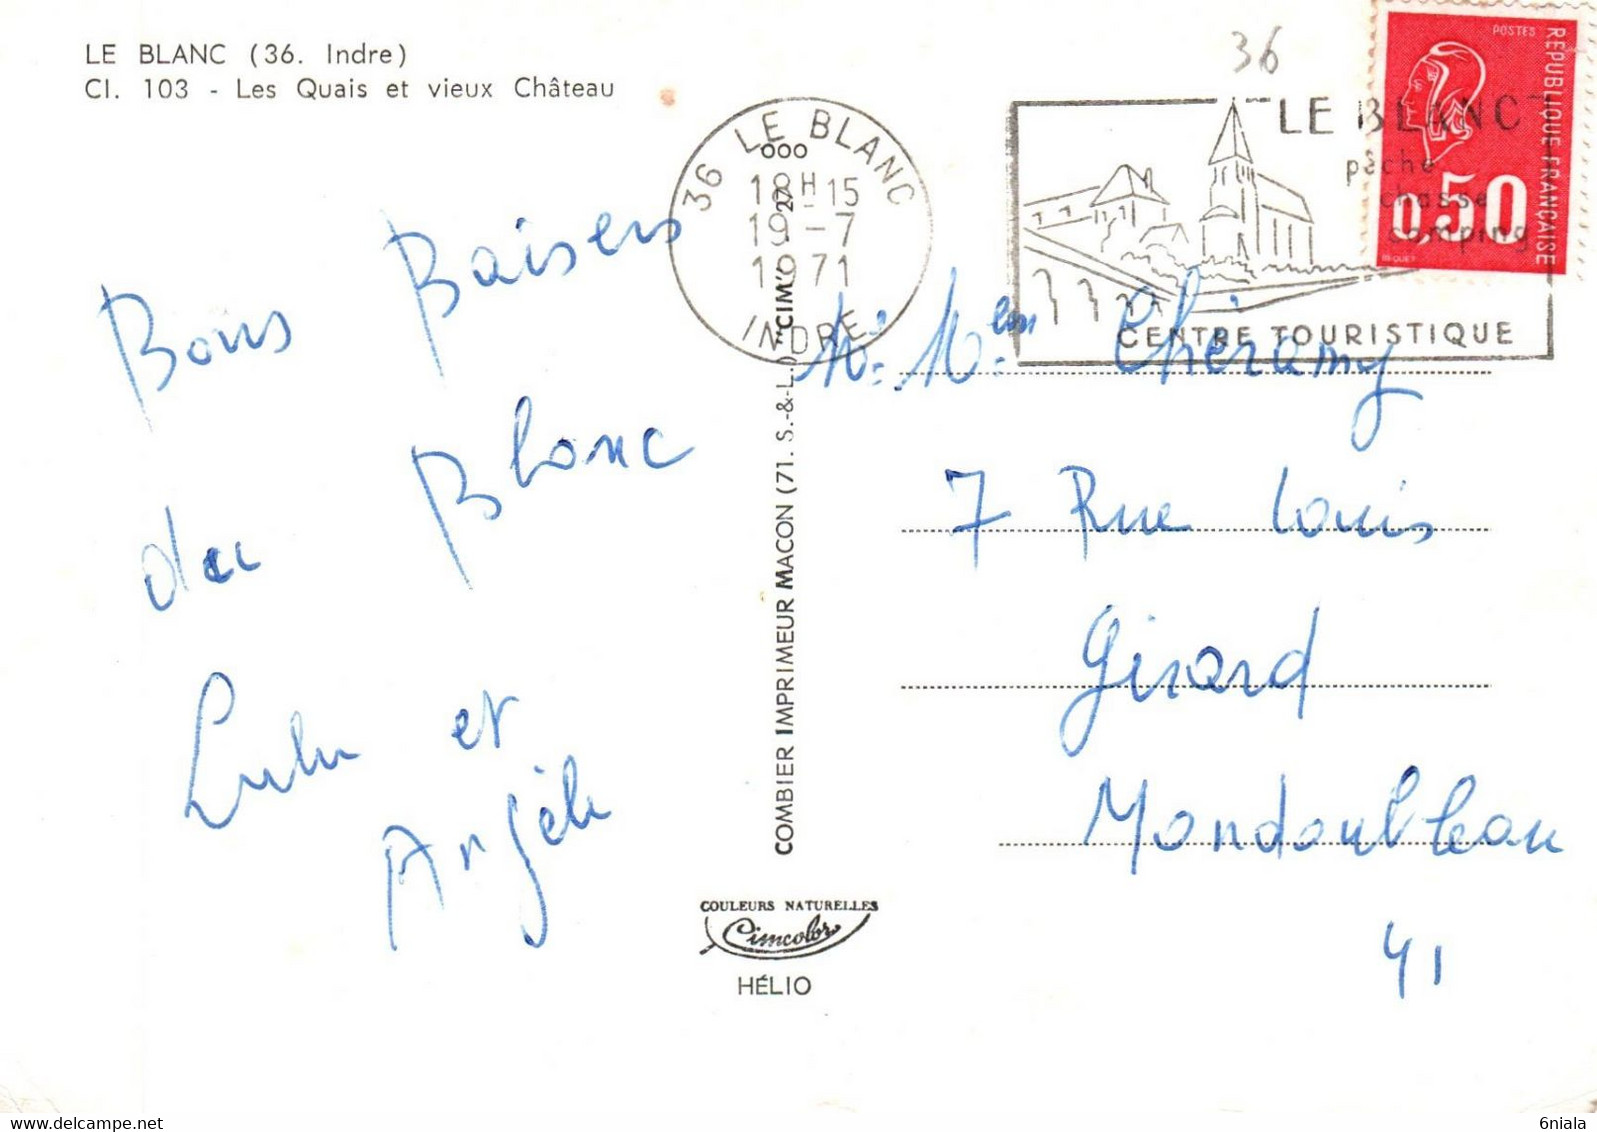 LE BLANC (36. Indre)
Cl. 103 - Les Quais et vieux Château
36
36 LE BLANC
ooo
18H-15
19-7
1971
INDRE
LE BLANC
pêche
chasse
camping
CENTRE TOURISTIQUE
POSTES
REPUBLIQUE FRANÇAISE
0,50
BEQUET
Bons Baisers
du Blanc
Lulu et
Angèle
COMBIER IMPRIMEUR MACON (71. S.-&-L.) "CIM"
Mr Mme Chéramy
7 Rue Louis
Girard
Mondoubleau
41
COULEURS NATURELLES
Cimcolor
HÉLIO
6niala